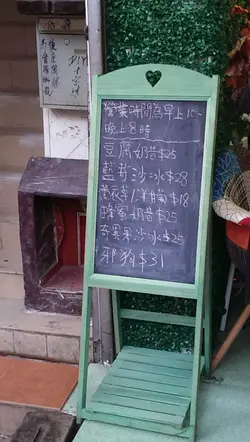 營業時間為早上10-
晚上8時
豆腐奶昔$25
藍莓沙冰$28
薰衣草/洋甘菊$18
蜂蜜奶昔$25
奇異果沙冰$25
熱狗$31
DIY